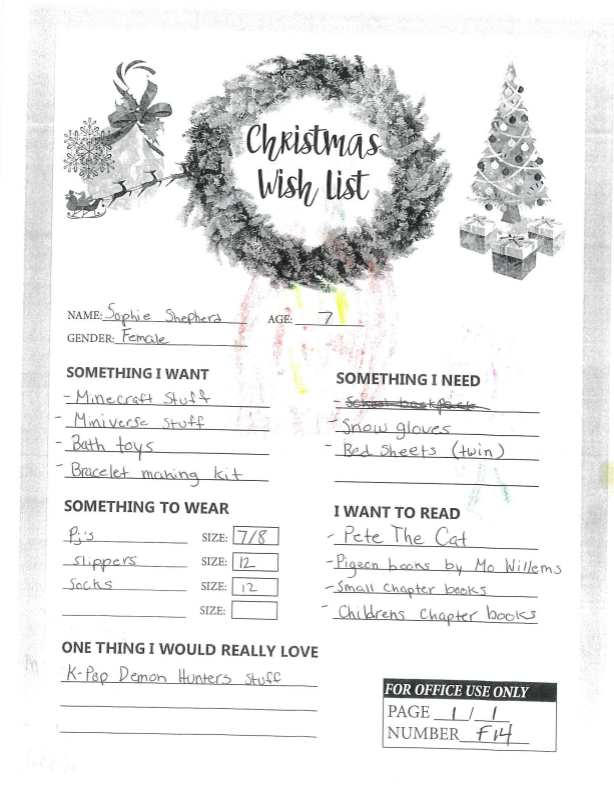 Christmas
Wish List
NAME: Sophie Shepherd AGE: 7
GENDER: Female
SOMETHING I WANT
- Minecraft Stuff
- Miniverse Stuff
- Bath toys
- Bracelet making kit
SOMETHING I NEED
- School backpack
- Snow gloves
- Bed Sheets (twin)
SOMETHING TO WEAR
Pj's SIZE: 7/8
Slippers SIZE: 12
Socks SIZE: 12
SIZE:
I WANT TO READ
- Pete The Cat
- Pigeon books by Mo Willems
- Small chapter books
- Childrens Chapter books
ONE THING I WOULD REALLY LOVE
K-Pop Demon Hunters Stuff
FOR OFFICE USE ONLY
PAGE 1 / 1
NUMBER F14